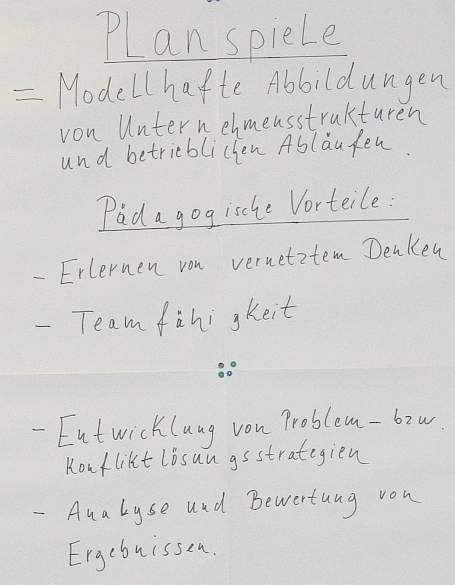 Planspiele
= Modellhafte Abbildungen
von Unternehmensstrukturen
und betrieblichen Abläufen.
Pädagogische Vorteile:
- Erlernen von vernetztem Denken
- Teamfähigkeit
- Entwicklung von Problem- bzw.
Konfliktlösungsstrategien
- Analyse und Bewertung von
Ergebnissen.